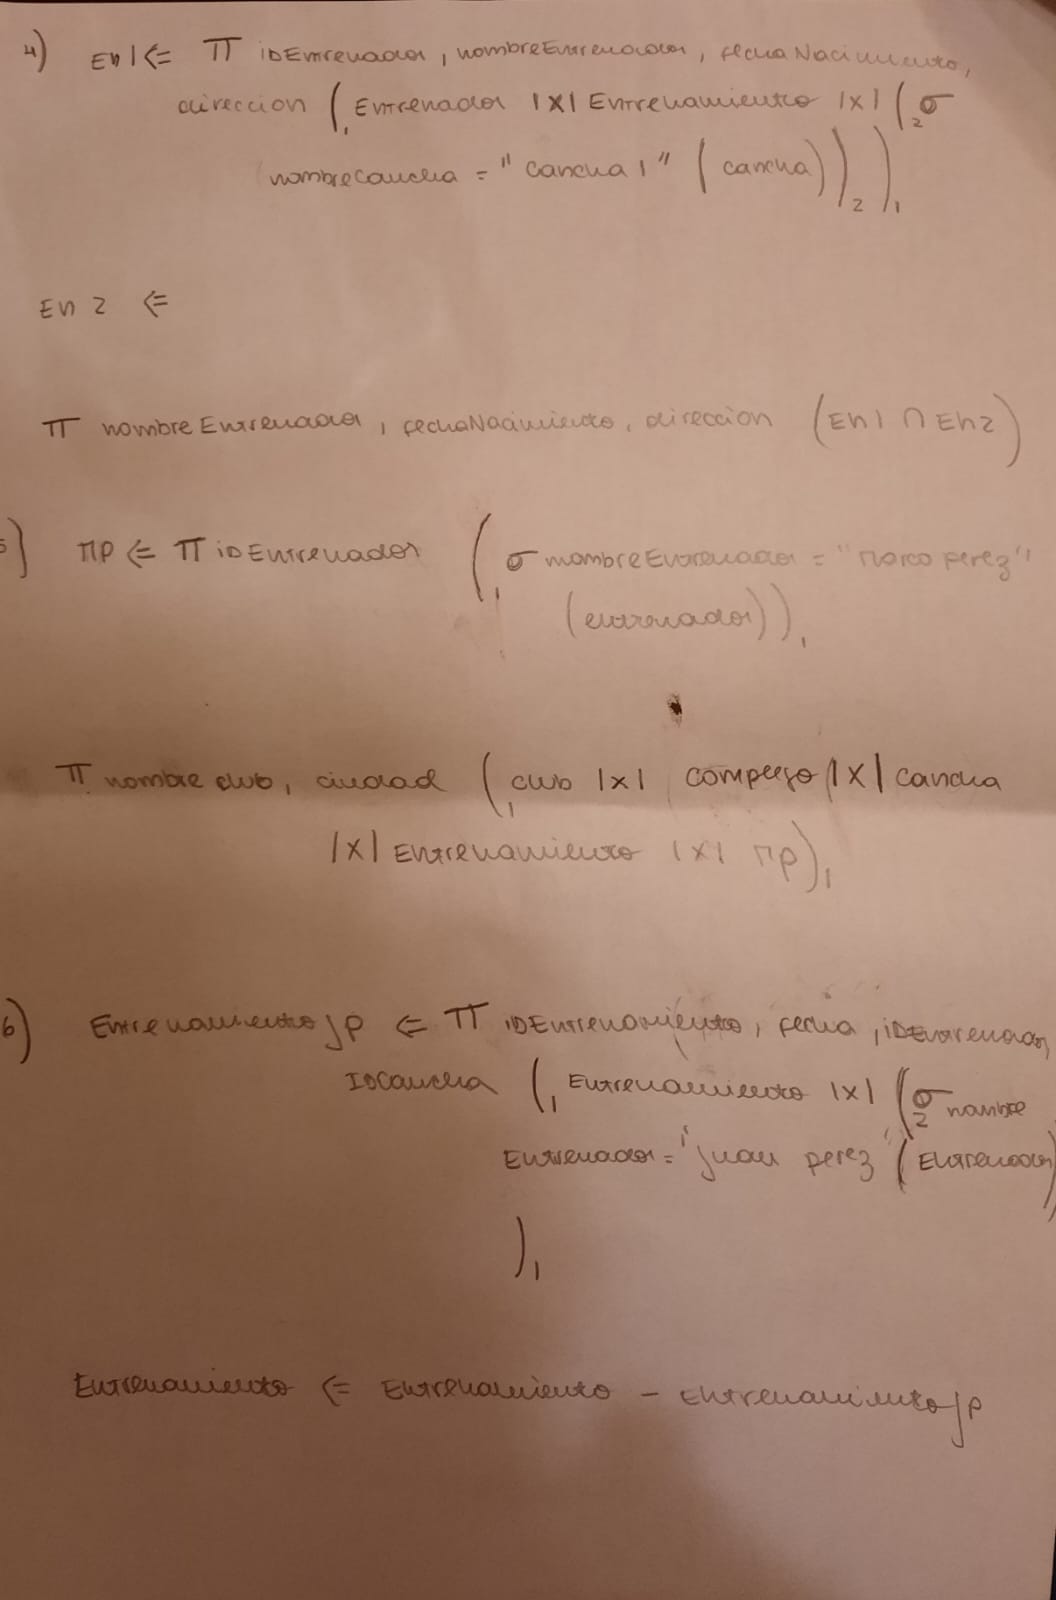 4) En1 <= π iDEntrenador, nombreEntrenador, fechaNacimiento,
direccion (1 Entrenador |X| Entrenamiento |X| (2 σ
nombrecancha = "cancha 1" (cancha))2)1
En 2 <=
π nombreEntrenador, fechaNacimiento, direccion (En1 ∩ En2)
5) MP <= π iDEntrenador (1 σ nombreEntrenador = "Marco perez"
(entrenador))1
π nombre club, ciudad (1 club |X| complejo |X| cancha
|X| Entrenamiento |X| MP)1
6) Entrenamientojp <= π iDEntrenamiento, fecha, iDEntrenador,
IDCancha (1 Entrenamiento |X| (2 σ nombre
Entrenador = "juan perez" (Entrenador)
)1
Entrenamiento <= Entrenamiento - Entrenamientojp